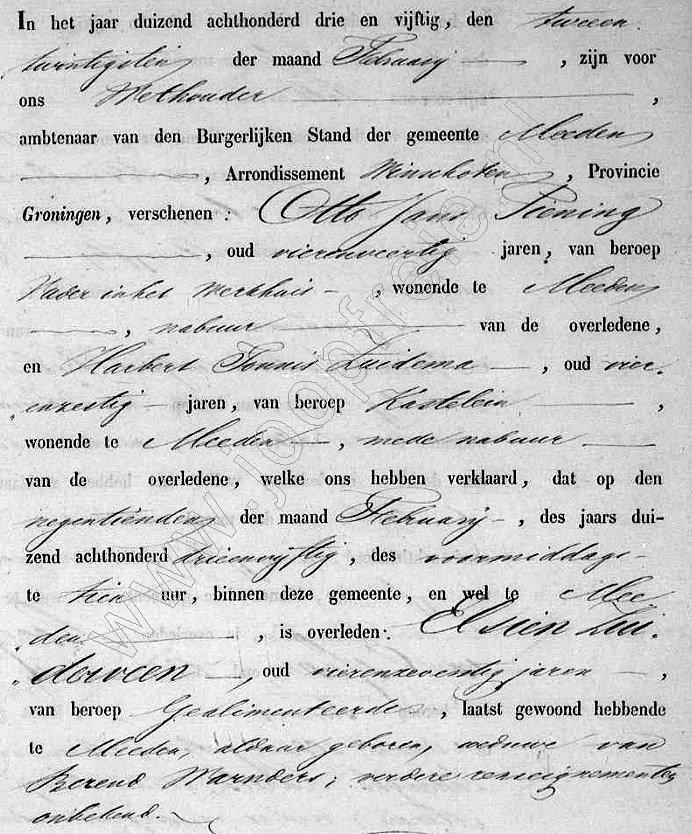 In het jaar duizend achthonderd drie en vijftig, den tween
twintigsten der maand February, zijn voor
ons Wethouder,
ambtenaar van den Burgerlijken Stand der gemeente Meeden
, Arrondissement Winschoten, Provincie
Groningen, verschenen: Otto Jans Piening
, oud vierenveertig jaren, van beroep
Vader in het werkhuis, wonende te Meeden
, nabuur van de overledene,
en Harbert Tonnis Luidema, oud vier-
"enzestig jaren, van beroep Kastelein,
wonende te Meeden, mede nabuur
van de overledene, welke ons hebben verklaard, dat op den
negentienden der maand February, des jaars dui-
zend achthonderd drieenvyftig, des voormiddags
te tien uur, binnen deze gemeente, en wel te Mee
"den, is overleden: Elsien Lui-
"derveen, oud vierenzeventig jaren,
van beroep Gealimenteerde, laatst gewoond hebbende
te Meeden, aldaar geboren, weduwe van
Berend Warnders; verdere renseignementen
onbekend.
www.joopfreie.nl